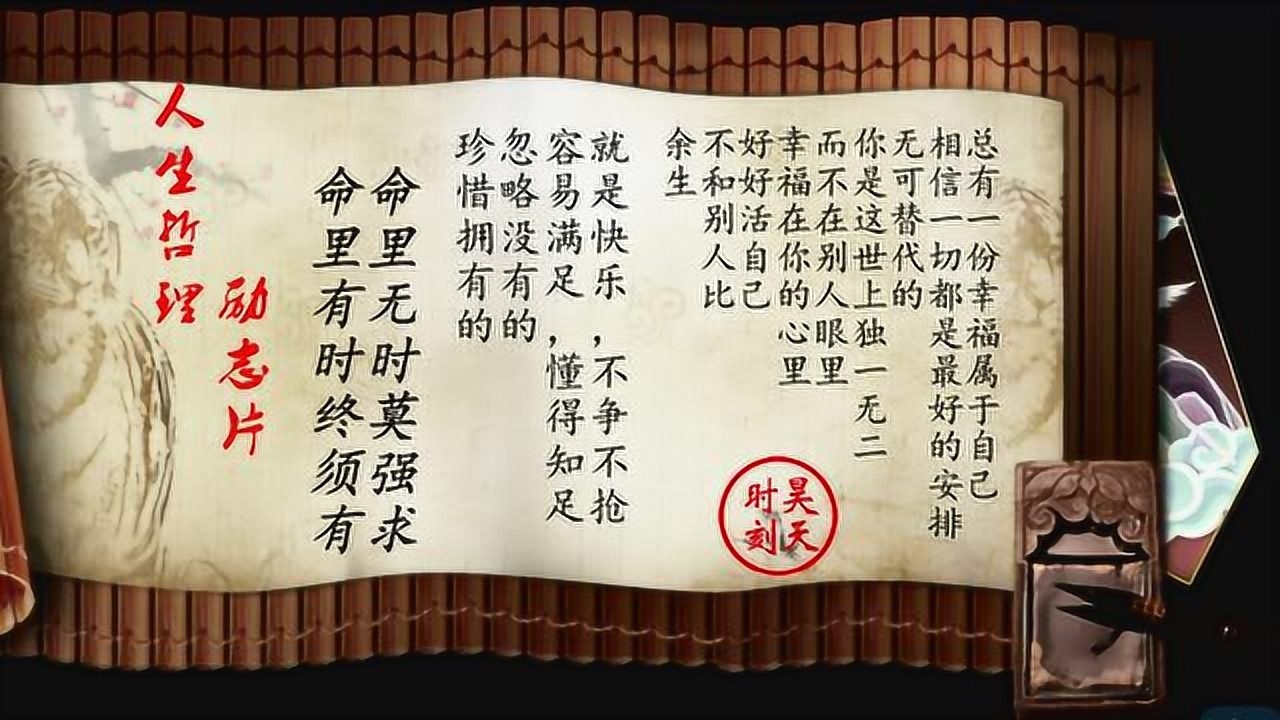 人生哲理
励志片
命里有时终须有
命里无时莫强求
珍惜拥有的
忽略没有的
容易满足，懂得知足
就是快乐，不争不抢
余生
不和别人比
好好活自己
幸福在你的心里
而不在别人眼里
你是这世上独一无二
无可替代的
相信一切都是最好的安排
总有一份幸福属于自己
昊天
时刻